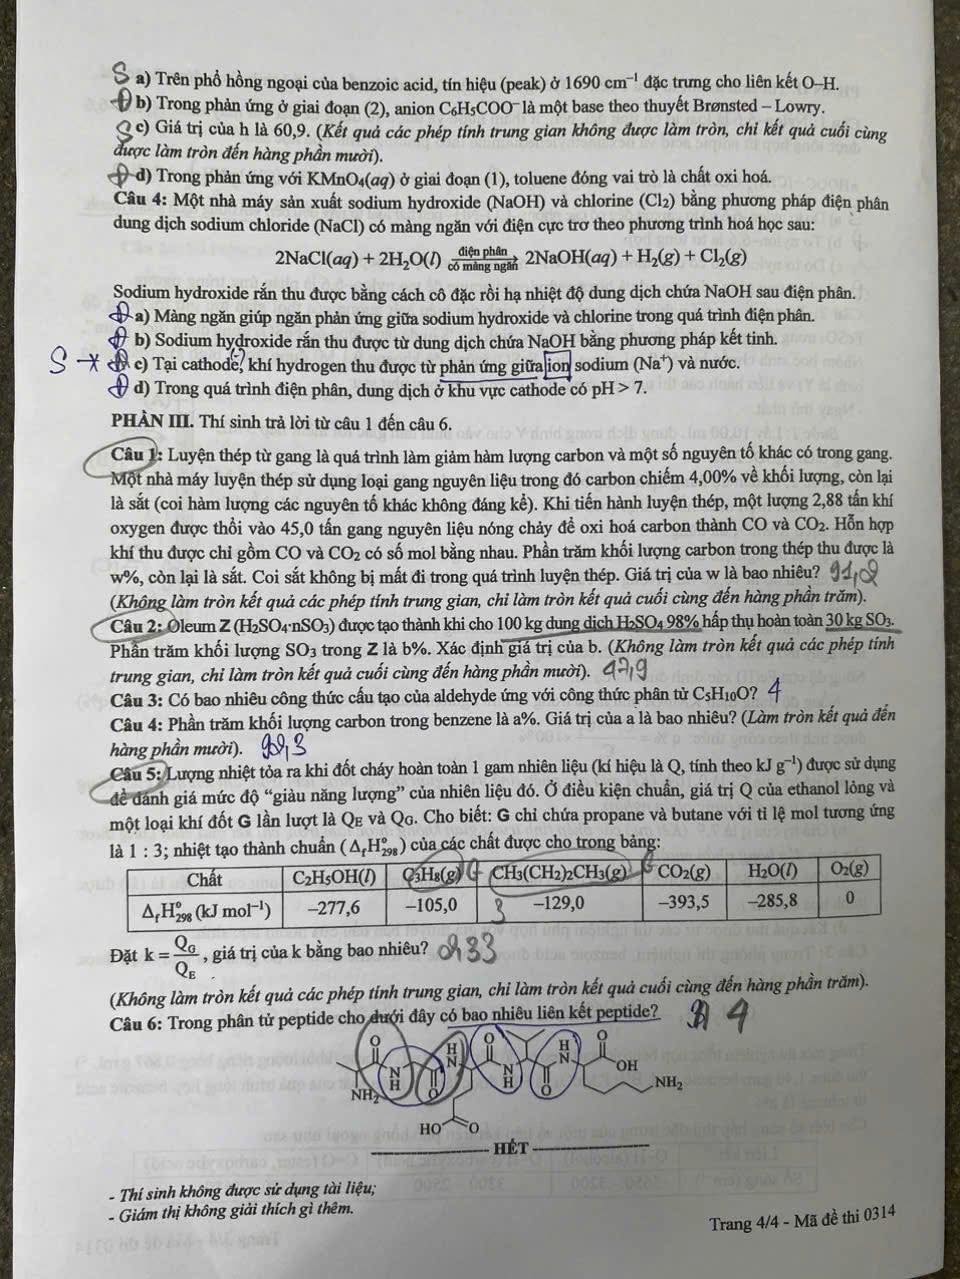 S a) Trên phổ hồng ngoại của benzoic acid, tín hiệu (peak) ở 1690 cm⁻¹ đặc trưng cho liên kết O–H.
Đ b) Trong phản ứng ở giai đoạn (2), anion C₆H₅COO⁻ là một base theo thuyết Brønsted – Lowry.
S c) Giá trị của h là 60,9. (Kết quả các phép tính trung gian không được làm tròn, chỉ kết quả cuối cùng
được làm tròn đến hàng phần mười).
Đ d) Trong phản ứng với KMnO₄(aq) ở giai đoạn (1), toluene đóng vai trò là chất oxi hoá.
Câu 4: Một nhà máy sản xuất sodium hydroxide (NaOH) và chlorine (Cl₂) bằng phương pháp điện phân
dung dịch sodium chloride (NaCl) có màng ngăn với điện cực trơ theo phương trình hoá học sau:
2NaCl(aq) + 2H₂O(l) điện phân có màng ngăn → 2NaOH(aq) + H₂(g) + Cl₂(g)
Sodium hydroxide rắn thu được bằng cách cô đặc rồi hạ nhiệt độ dung dịch chứa NaOH sau điện phân.
Đ a) Màng ngăn giúp ngăn phản ứng giữa sodium hydroxide và chlorine trong quá trình điện phân.
Đ b) Sodium hydroxide rắn thu được từ dung dịch chứa NaOH bằng phương pháp kết tinh.
S * c) Tại cathode, (-) khí hydrogen thu được từ phản ứng giữa ion sodium (Na⁺) và nước.
Đ d) Trong quá trình điện phân, dung dịch ở khu vực cathode có pH > 7.
PHẦN III. Thí sinh trả lời từ câu 1 đến câu 6.
Câu 1: Luyện thép từ gang là quá trình làm giảm hàm lượng carbon và một số nguyên tố khác có trong gang.
Một nhà máy luyện thép sử dụng loại gang nguyên liệu trong đó carbon chiếm 4,00% về khối lượng, còn lại
là sắt (coi hàm lượng các nguyên tố khác không đáng kể). Khi tiến hành luyện thép, một lượng 2,88 tấn khí
oxygen được thổi vào 45,0 tấn gang nguyên liệu nóng chảy để oxi hoá carbon thành CO và CO₂. Hỗn hợp
khí thu được chỉ gồm CO và CO₂ có số mol bằng nhau. Phần trăm khối lượng carbon trong thép thu được là
w%, còn lại là sắt. Coi sắt không bị mất đi trong quá trình luyện thép. Giá trị của w là bao nhiêu?
(Không làm tròn kết quả các phép tính trung gian, chỉ làm tròn kết quả cuối cùng đến hàng phần trăm).
Câu 2: Oleum Z (H₂SO₄·nSO₃) được tạo thành khi cho 100 kg dung dịch H₂SO₄ 98% hấp thụ hoàn toàn 30 kg SO₃.
Phần trăm khối lượng SO₃ trong Z là b%. Xác định giá trị của b. (Không làm tròn kết quả các phép tính
trung gian, chỉ làm tròn kết quả cuối cùng đến hàng phần mười). 17,9
Câu 3: Có bao nhiêu công thức cấu tạo của aldehyde ứng với công thức phân tử C₅H₁₀O? 4
Câu 4: Phần trăm khối lượng carbon trong benzene là a%. Giá trị của a là bao nhiêu? (Làm tròn kết quả đến
hàng phần mười). 92,3
Câu 5: Lượng nhiệt tỏa ra khi đốt cháy hoàn toàn 1 gam nhiên liệu (kí hiệu là Q, tính theo kJ g⁻¹) được sử dụng
để đánh giá mức độ “giàu năng lượng” của nhiên liệu đó. Ở điều kiện chuẩn, giá trị Q của ethanol lỏng và
một loại khí đốt G lần lượt là Q_E và Q_G. Cho biết: G chỉ chứa propane và butane với tỉ lệ mol tương ứng
là 1 : 3; nhiệt tạo thành chuẩn (Δ_fH°₂₉₈) của các chất được cho trong bảng:
Chất C₂H₅OH(l) C₃H₈(g) CH₃(CH₂)₂CH₃(g) CO₂(g) H₂O(l) O₂(g)
Δ_fH°₂₉₈ (kJ mol⁻¹) –277,6 –105,0 –129,0 –393,5 –285,8 0
Đặt k = Q_G/Q_E, giá trị của k bằng bao nhiêu?
(Không làm tròn kết quả các phép tính trung gian, chỉ làm tròn kết quả cuối cùng đến hàng phần trăm).
Câu 6: Trong phân tử peptide cho dưới đây có bao nhiêu liên kết peptide? 4
O H N O H N O
N H O N H O OH
NH₂ NH₂
HO O
HẾT
- Thí sinh không được sử dụng tài liệu;
- Giám thị không giải thích gì thêm.
Trang 4/4 - Mã đề thi 0314